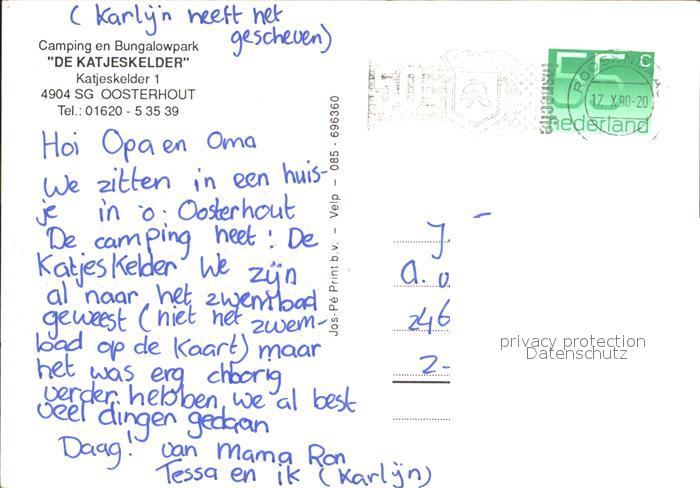 ( Karlijn heeft het
gescheven)
Camping en Bungalowpark
"DE KATJESKELDER"
Katjeskelder 1
4904 SG OOSTERHOUT
Tel.: 01620 - 5 35 39
Hoi Opa en Oma
We zitten in een huis-
je in o. Oosterhout
De camping heet: De
Katjeskelder We zijn
al naar het zwembad
geweest (niet het zwem-
bad op de kaart) maar
het was erg chlorig
verder hebben we al best
veel dingen gedaan
Daag! van Mama Ron
Tessa en ik (Karlijn)
Jos-Pé Print b.v. – Velp – 085 - 696360
55 c
nederland
17.X.90-20
J.
a. v.
246
2-
privacy protection
Datenschutz